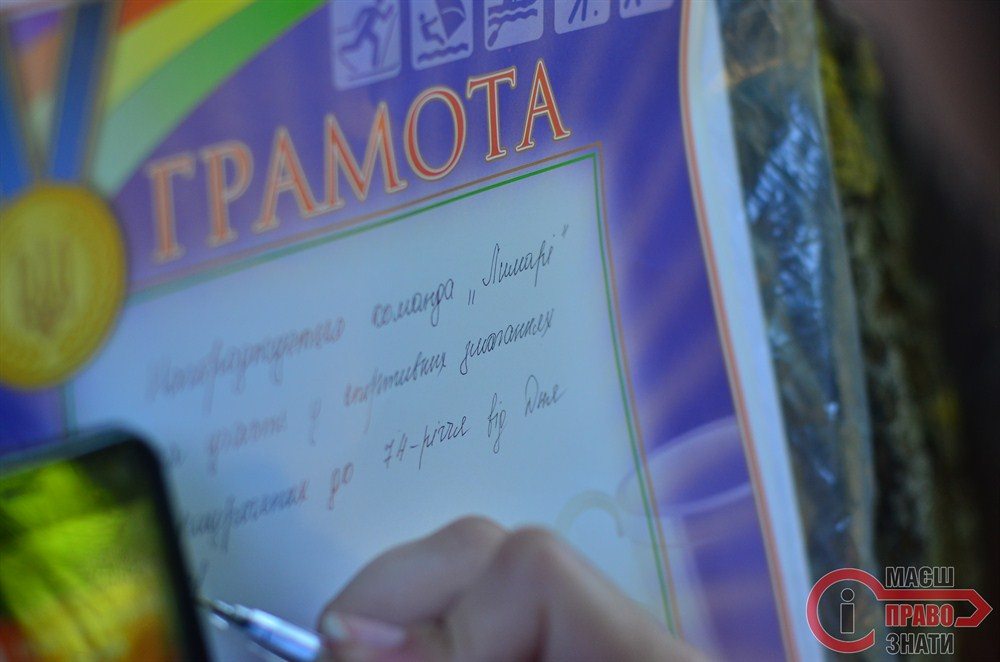 ГРАМОТА
Нагороджується команда „Лимарі"
за участь у спортивних змаганнях
до 74-річчя від Дня
МАЄШ
ПРАВО
ЗНАТИ